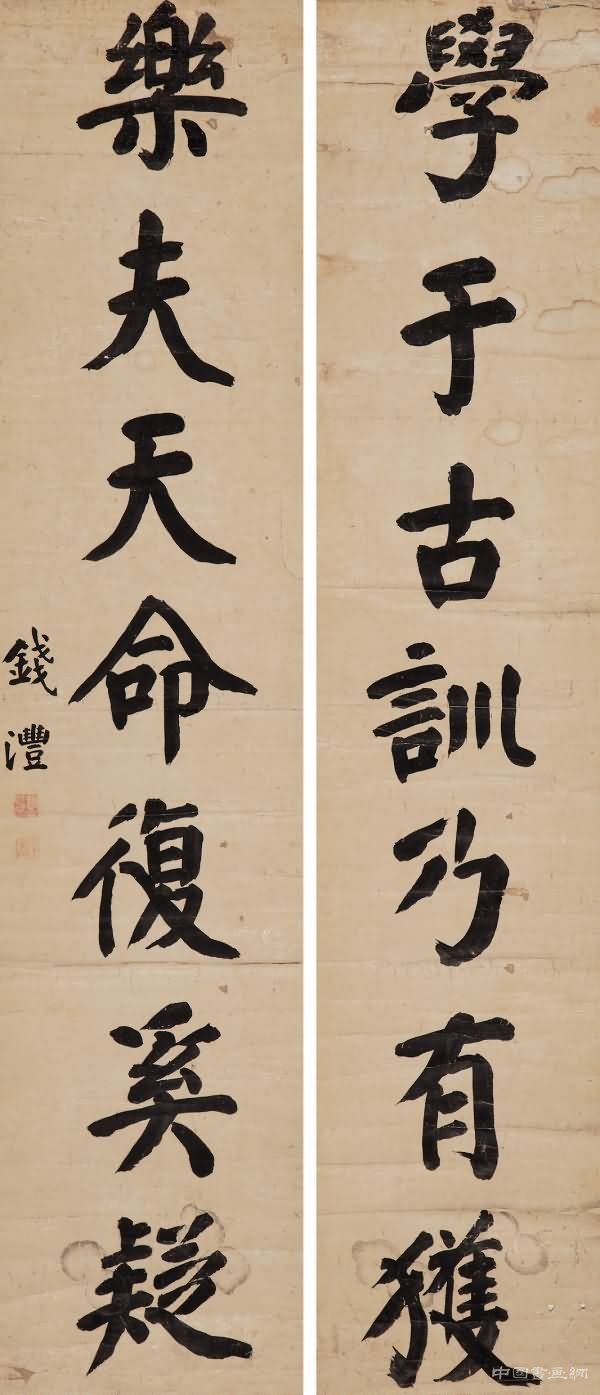 學于古訓乃有獲
樂夫天命復奚疑
錢灃
中国書画网